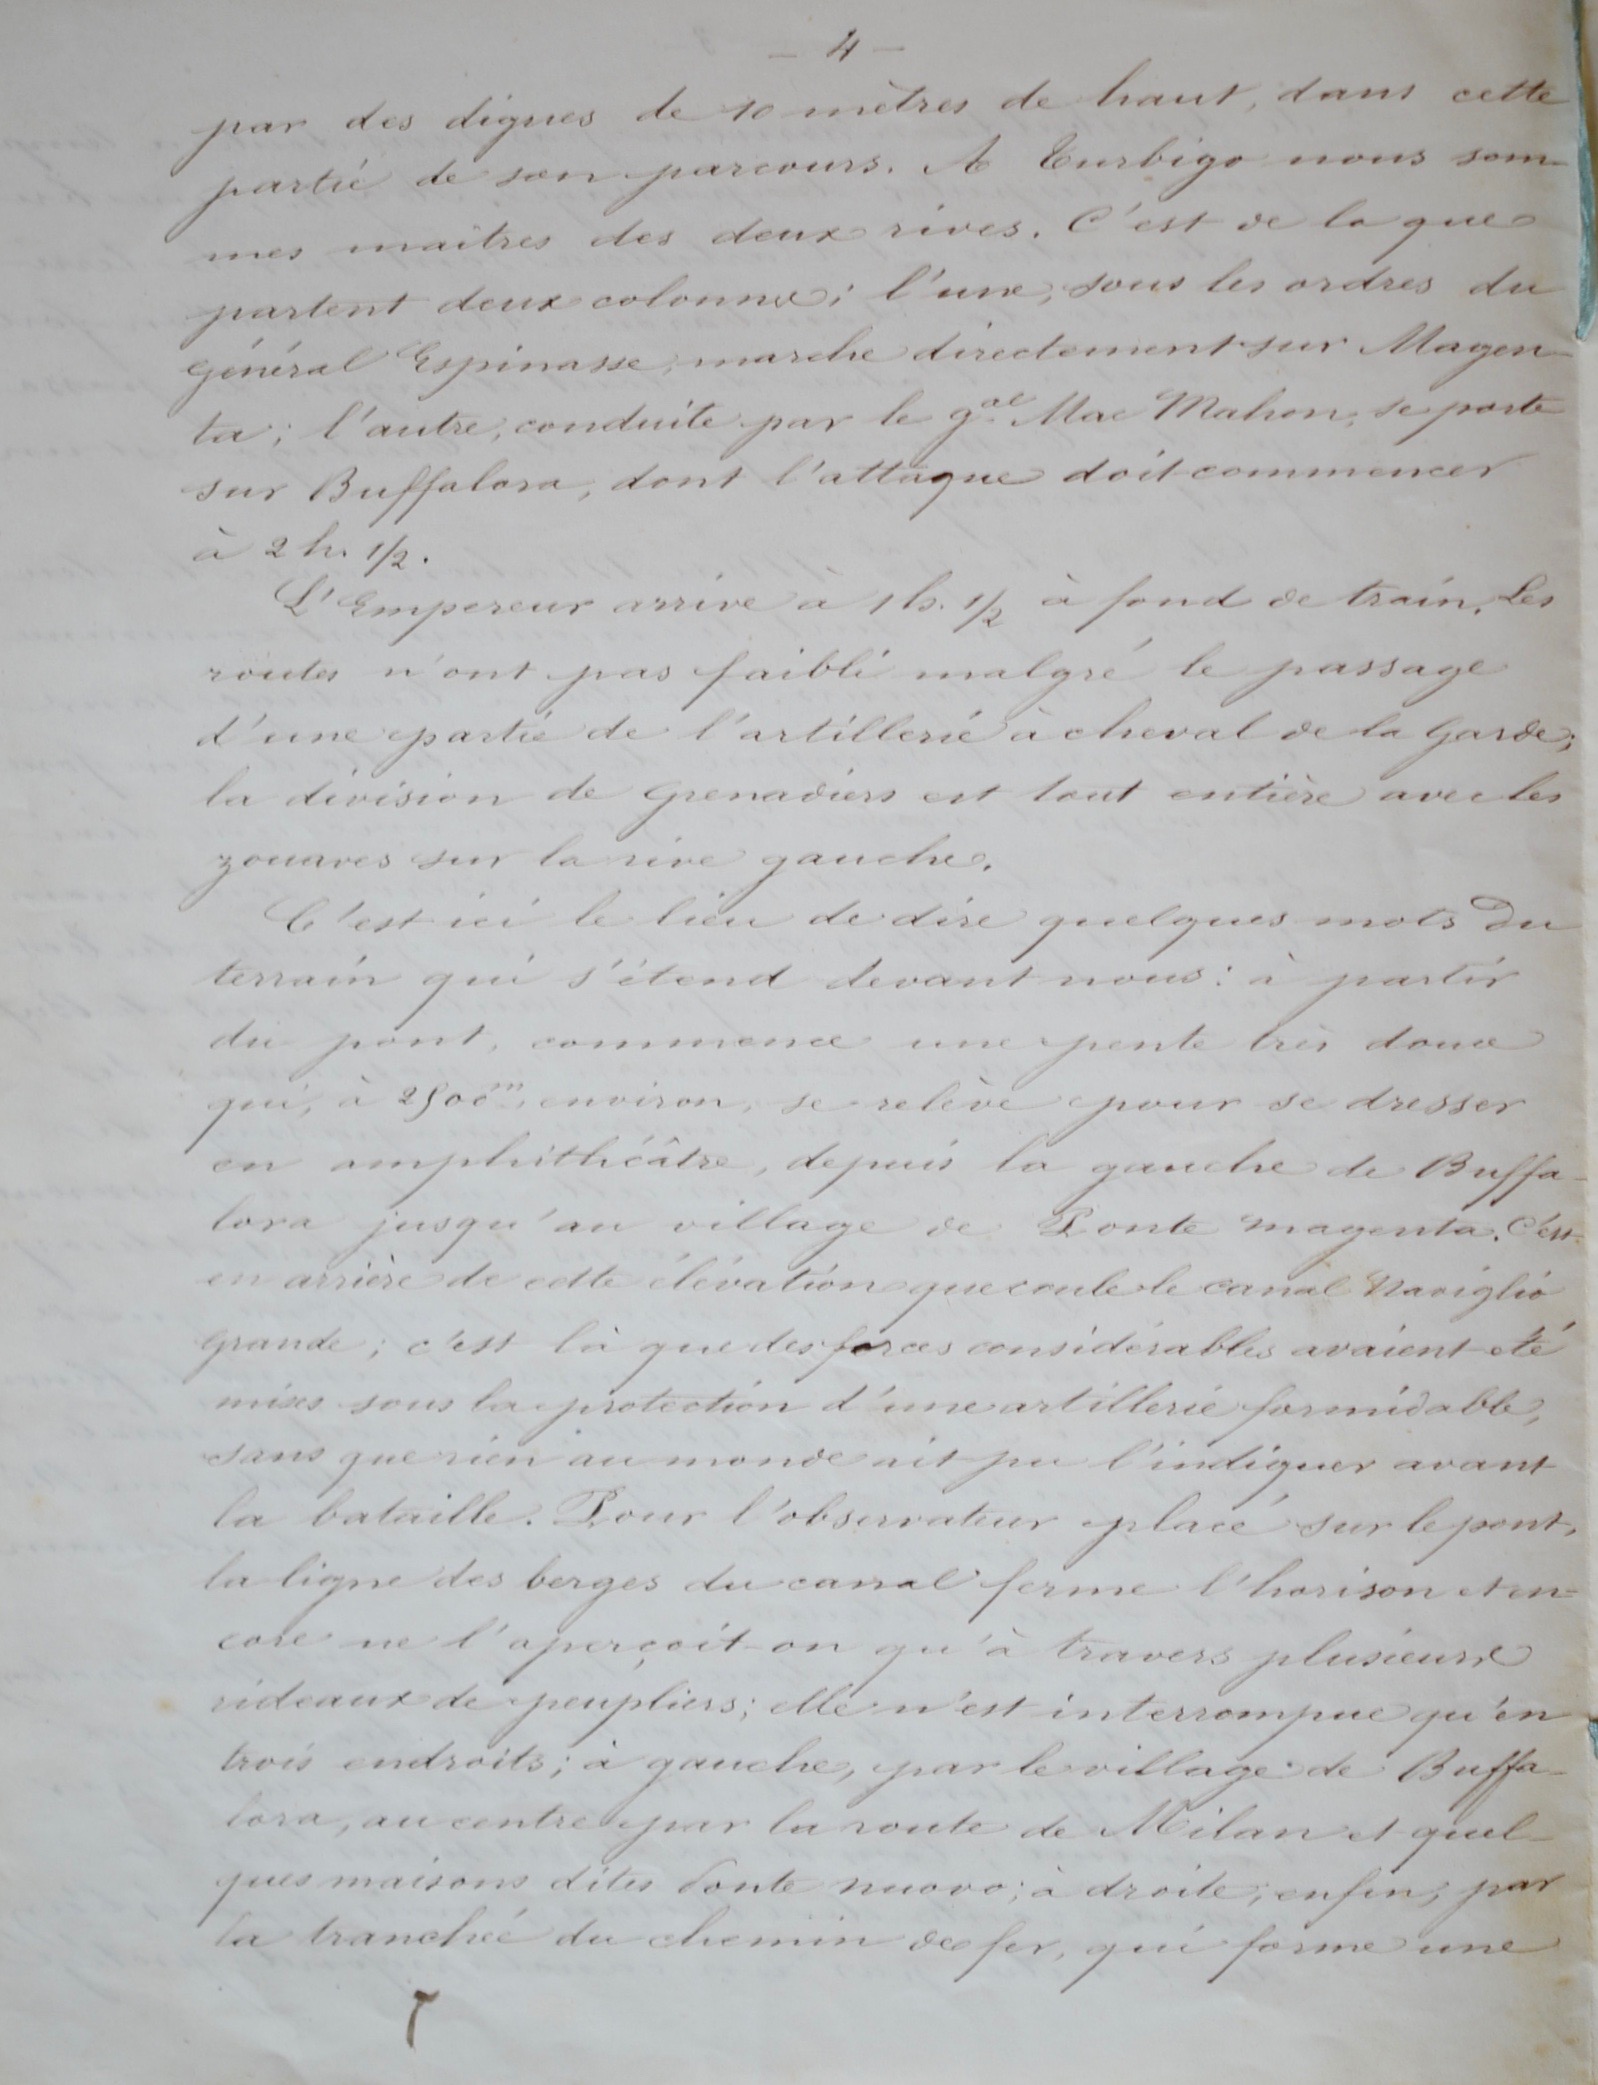 - 4 -
par des digues de 10 mètres de haut, dans cette
partie de son parcours. A Turbigo nous som-
mes maîtres des deux rives. C'est de la que
partent deux colonnes; l'une, sous les ordres du
général Espinasse, marche directement sur Magen-
ta; l'autre, conduite par le gal Mac Mahon, se porte
sur Buffalora, dont l'attaque doit commencer
à 2 h. 1/2.
L'Empereur arrive à 1 h. 1/2 à fond de train. Les
routes n'ont pas faibli malgré le passage
d'une partie de l'artillerie à cheval de la Garde;
la division de Grenadiers est tout entière avec les
zouaves sur la rive gauche.
C'est ici le lieu de dire quelques mots Du
terrain qui s'étend devant nous: à partir
du pont, commence une pente très douce
qui, à 2500m. environ, se relève pour se dresser
en amphithéâtre, depuis la gauche de Buffa-
lora jusqu'au village de Ponte Magenta. C'est
en arrière de cette élévation que coule le canal Naviglio
Grande; c'est là que des forces considérables avaient été
mises sous la protection d'une artillerie formidable,
sans que rien au monde ait pu l'indiquer avant
la bataille. Pour l'observateur placé sur le pont,
la ligne des berges du canal ferme l'horison et en=
core ne l'aperçoit-on qu'à travers plusieurs
rideaux de peupliers; elle n'est interrompue qu'en
trois endroits; à gauche, par le village de Buffa-
lora, au centre par la route de Milan et quel-
ques maisons dites Ponte nuovo; à droite, enfin, par
la tranchée du chemin de fer, qui forme une